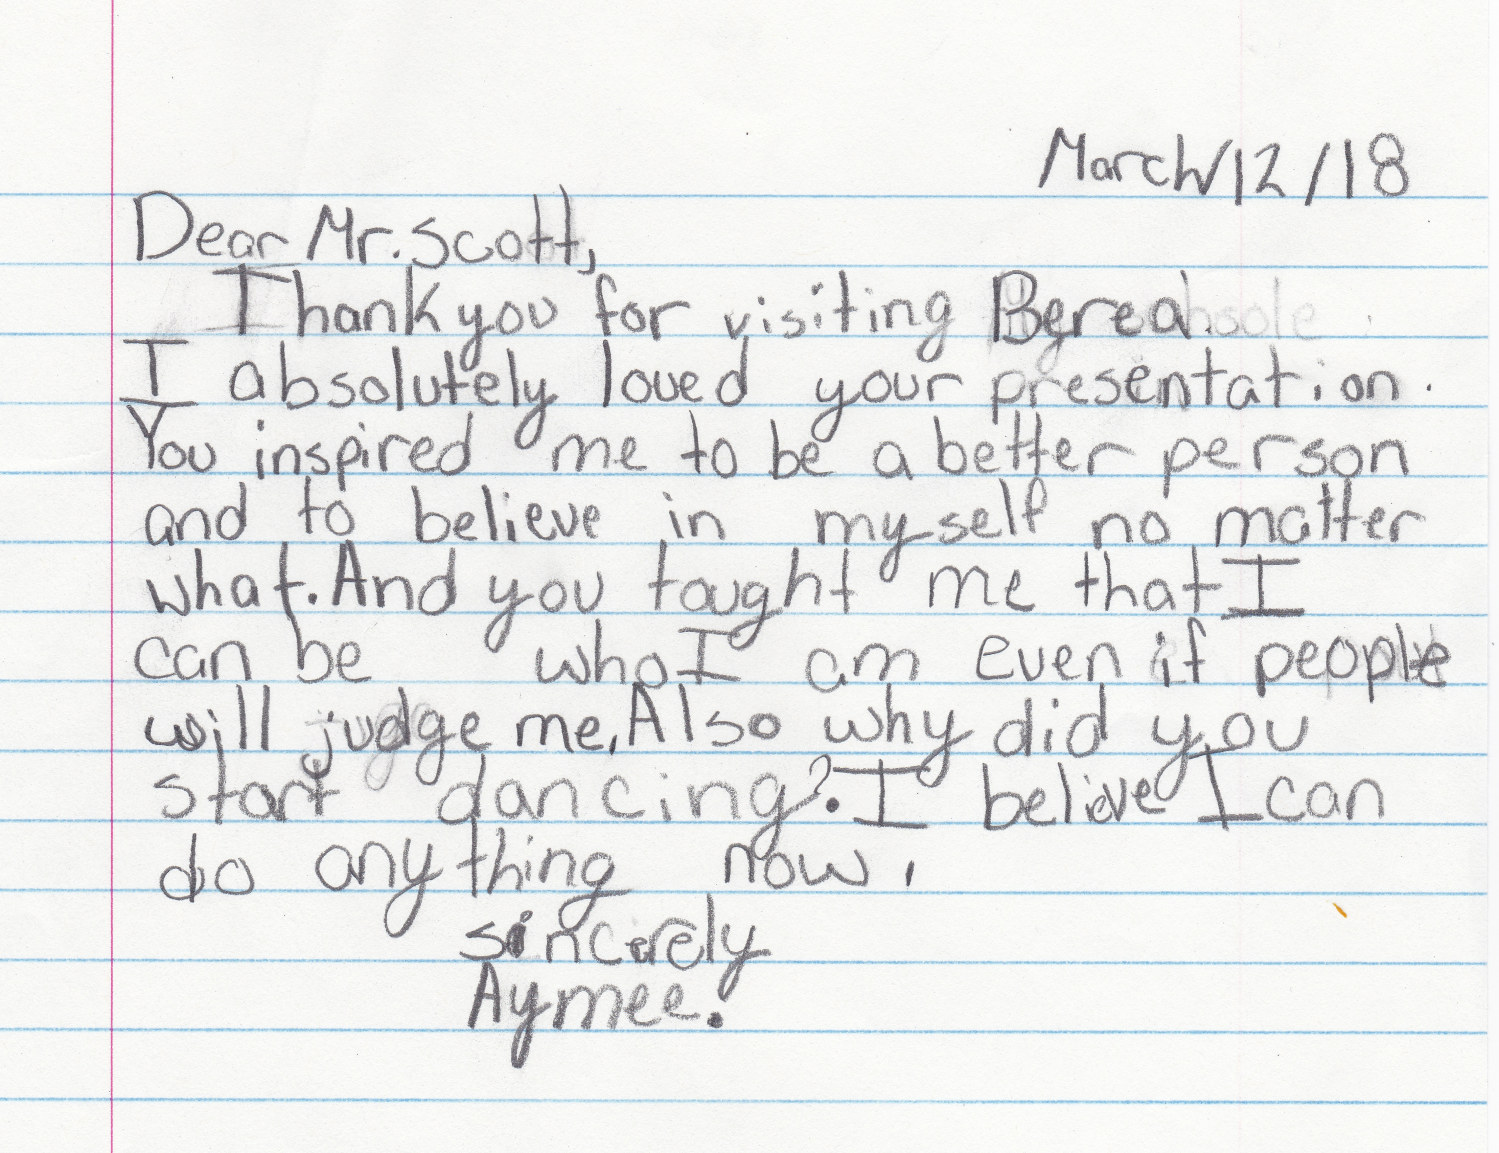 March/12/18
Dear Mr. Scott,
Thank you for visiting Berea.
I absolutely loved your presentation.
You inspired me to be a better person
and to believe in myself no matter
what. And you tought me that I
can be who I am even if people
will judge me. Also why did you
start dancing? I belive I can
do anything now.
sincerely
Aymee.